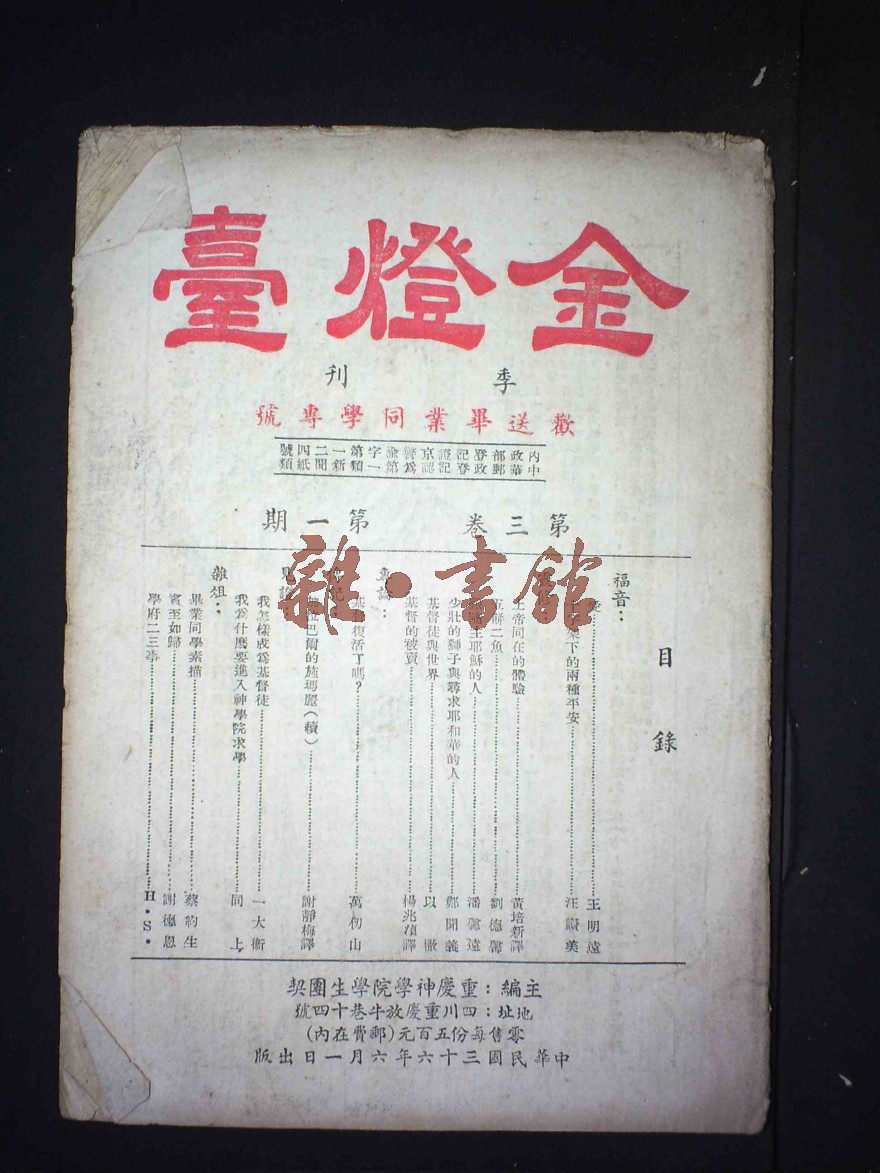 金燈臺
季刊
歡送畢業同學專號
內政部登記證京警渝字第一二四號
中華郵政登記認為第一類新聞紙類
第三卷 第一期
目錄
福音：
王明遠
下的兩種平安 汪讚美
上帝同在的體驗 黃培新譯
五餅二魚 劉德馨
主耶穌的人 潘馨遠
少壯的獅子與尋求耶和華的人 鄭開義
基督徒與世界 以
基督的被賣 楊兆禎譯
基督復活了嗎？ 萬仞山
巴爾的施瑪麗（續） 謝靜梅譯
我怎樣成為基督徒 一大衛
我為什麼要進入神學院求學 同上
雜俎：
畢業同學素描 蔡約生
賓至如歸 謝德恩
學府二三事 H．S．
雜·書館
主編：重慶神學院學生團契
地址：四川重慶放牛巷十四號
零售每份五百元(郵費在內)
中華民國三十六年六月一日出版